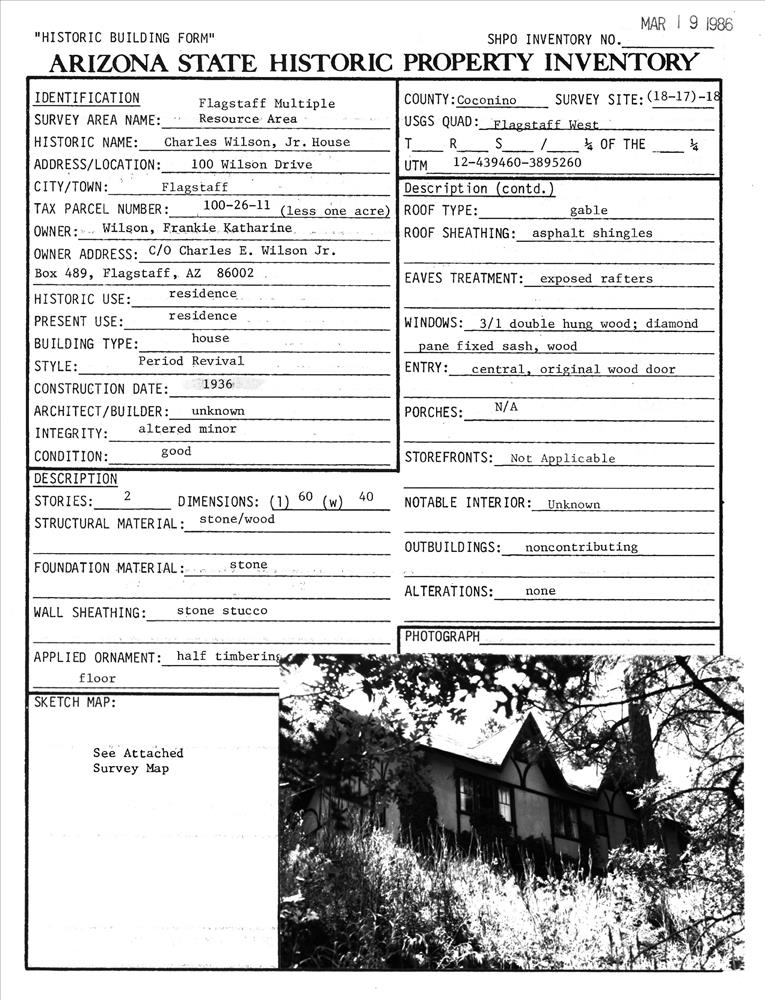 MAR 19 1986
"HISTORIC BUILDING FORM"
SHPO INVENTORY NO.
ARIZONA STATE HISTORIC PROPERTY INVENTORY
IDENTIFICATION
SURVEY AREA NAME: Flagstaff Multiple
Resource Area
HISTORIC NAME: Charles Wilson, Jr. House
ADDRESS/LOCATION: 100 Wilson Drive
CITY/TOWN: Flagstaff
TAX PARCEL NUMBER: 100-26-11 (less one acre)
OWNER: Wilson, Frankie Katharine
OWNER ADDRESS: C/O Charles E. Wilson Jr.
Box 489, Flagstaff, AZ 86002
HISTORIC USE: residence
PRESENT USE: residence
BUILDING TYPE: house
STYLE: Period Revival
CONSTRUCTION DATE: 1936
ARCHITECT/BUILDER: unknown
INTEGRITY: altered minor
CONDITION: good
DESCRIPTION
STORIES: 2 DIMENSIONS: (l) 60 (w) 40
STRUCTURAL MATERIAL: stone/wood
FOUNDATION MATERIAL: stone
WALL SHEATHING: stone stucco
APPLIED ORNAMENT: half timbering
floor
SKETCH MAP:
See Attached
Survey Map
COUNTY: Coconino SURVEY SITE: (18-17)-18
USGS QUAD: Flagstaff West
T R S / ¼ OF THE ¼
UTM 12-439460-3895260
Description (contd.)
ROOF TYPE: gable
ROOF SHEATHING: asphalt shingles
EAVES TREATMENT: exposed rafters
WINDOWS: 3/1 double hung wood; diamond
pane fixed sash, wood
ENTRY: central, original wood door
PORCHES: N/A
STOREFRONTS: Not Applicable
NOTABLE INTERIOR: Unknown
OUTBUILDINGS: noncontributing
ALTERATIONS: none
PHOTOGRAPH